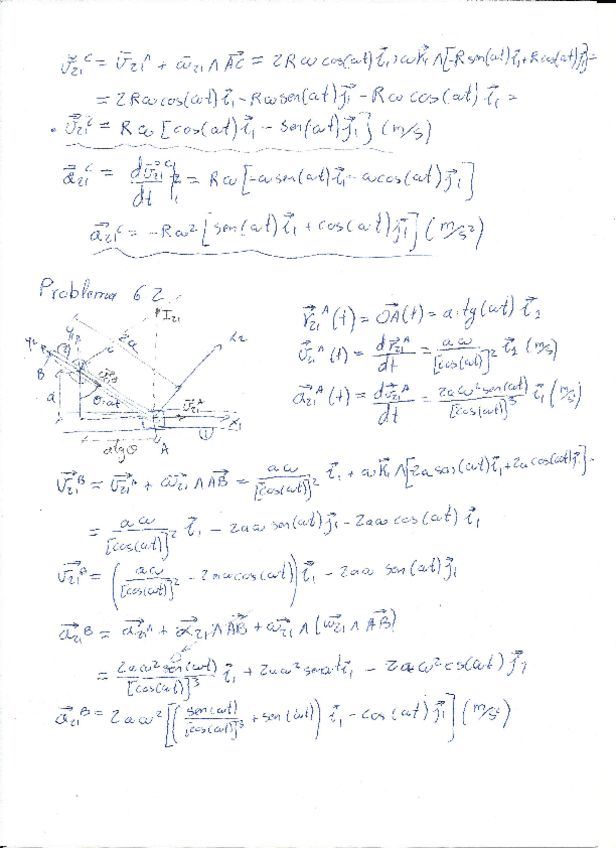 v⃗₂₁ᶜ = v⃗₂₁ᴬ + ω⃗₂₁ ∧ AC⃗ = 2Rω cos(ωt) i⃗₁ + ω k⃗₁ ∧ [-R sen(ωt) i⃗₁ + R cos(ωt) j⃗₁] =
= 2Rω cos(ωt) i⃗₁ - Rω sen(ωt) j⃗₁ - Rω cos(ωt) i⃗₁ =
v⃗₂₁ᶜ = Rω [cos(ωt) i⃗₁ - sen(ωt) j⃗₁] (m/s)
a⃗₂₁ᶜ = dv⃗₂₁ᶜ/dt |₁ = Rω [-ω sen(ωt) i⃗₁ - ω cos(ωt) j⃗₁]
a⃗₂₁ᶜ = -Rω² [sen(ωt) i⃗₁ + cos(ωt) j⃗₁] (m/s²)
Problema 6.2.
I₂₁
2a
x₂
y₂
B
a
θ=ωt
v⃗₂₁ᴬ
x₁
A
a tg θ
r⃗₂₁ᴬ(t) = OA⃗(t) = a · tg(ωt) i⃗₁
v⃗₂₁ᴬ(t) = dr⃗₂₁ᴬ/dt = aω/[cos(ωt)]² i⃗₁ (m/s)
a⃗₂₁ᴬ(t) = dv⃗₂₁ᴬ/dt = 2aω² sen(ωt)/[cos(ωt)]³ i⃗₁ (m/s)
v⃗₂₁ᴮ = v⃗₂₁ᴬ + ω⃗₂₁ ∧ AB⃗ = aω/[cos(ωt)]² i⃗₁ + ω k⃗₁ ∧ [-2a sen(ωt) i⃗₁ + 2a cos(ωt) j⃗₁] =
= aω/[cos(ωt)]² i⃗₁ - 2aω sen(ωt) j⃗₁ - 2aω cos(ωt) i⃗₁
v⃗₂₁ᴮ = (aω/[cos(ωt)]² - 2aω cos(ωt)) i⃗₁ - 2aω sen(ωt) j⃗₁
a⃗₂₁ᴮ = a⃗₂₁ᴬ + α⃗₂₁ ∧ AB⃗ + ω⃗₂₁ ∧ (ω⃗₂₁ ∧ AB⃗)
= 2aω² sen(ωt)/[cos(ωt)]³ i⃗₁ + 2aω² senωt i⃗₁ - 2aω² cos(ωt) j⃗₁
a⃗₂₁ᴮ = 2aω² [(sen(ωt)/[cos(ωt)]³ + sen(ωt)) i⃗₁ - cos(ωt) j⃗₁] (m/s²)